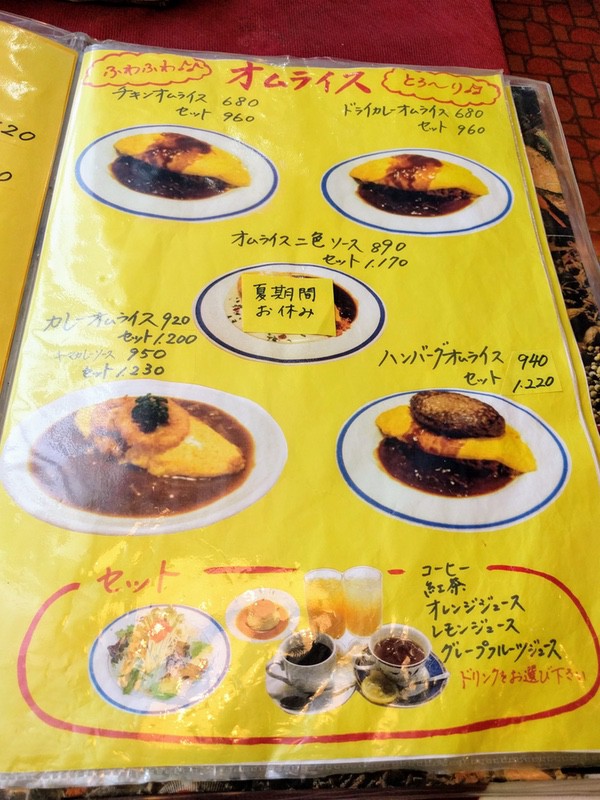 ふわふわ♪♪
オムライス
とろ〜り♫
チキンオムライス 680
セット 960
ドライカレーオムライス 680
セット 960
オムライス二色ソース 890
セット 1.170
夏期間
お休み
カレーオムライス 920
セット 1.200
セット 950
セット 1.230
ハンバーグオムライス 940
セット 1.220
セット
コーヒー
紅茶
オレンジジュース
レモンジュース
グレープフルーツジュース
ドリンクをお選び下さい
20
0